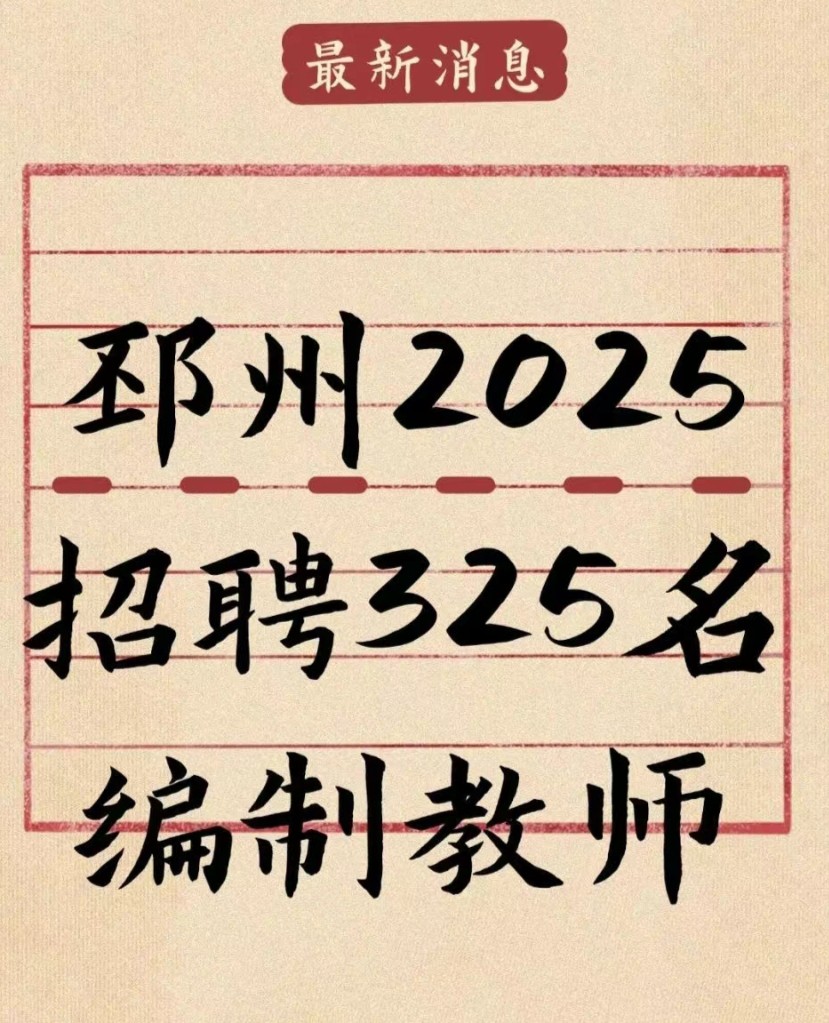 最新消息
邳州2025
招聘325名
编制教师